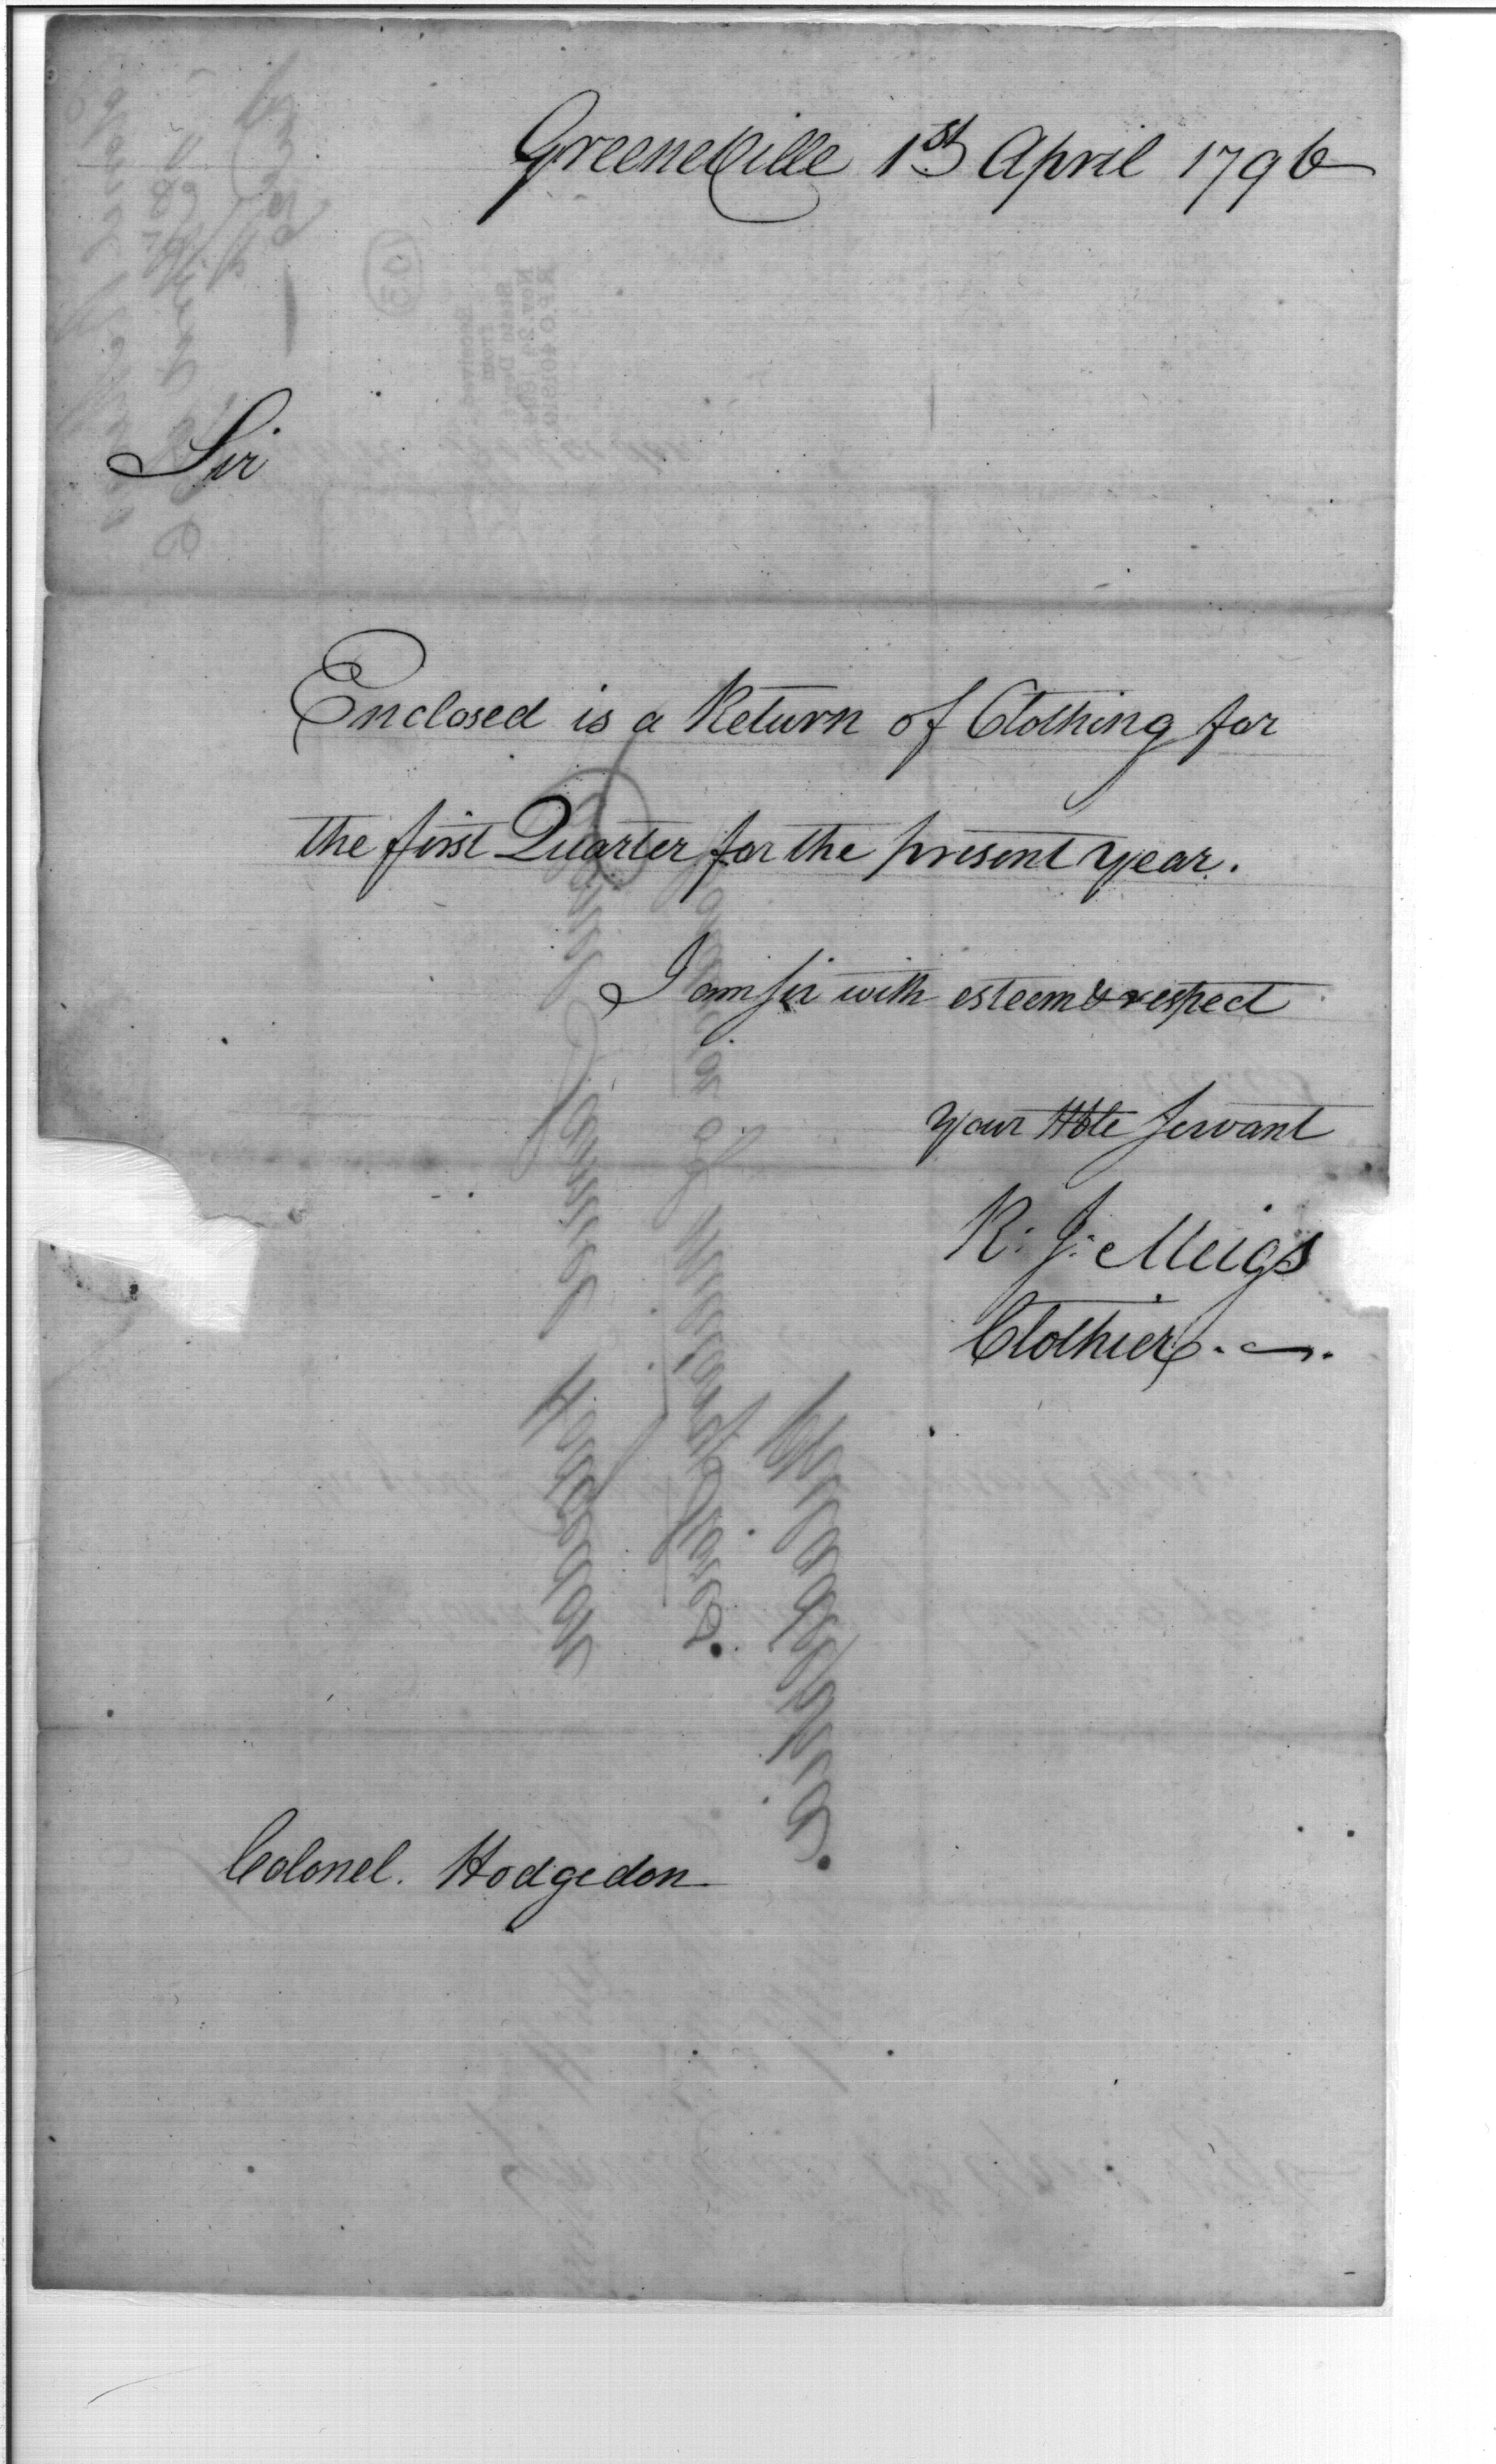 GreeneVille 1st April 1796
Sir
Enclosed is a Return of Clothing for
the first Quarter for the present year.
I am Sir with esteem & respect
your Hble Servant
R. J. Meigs
Clothier
Colonel. Hodgedon